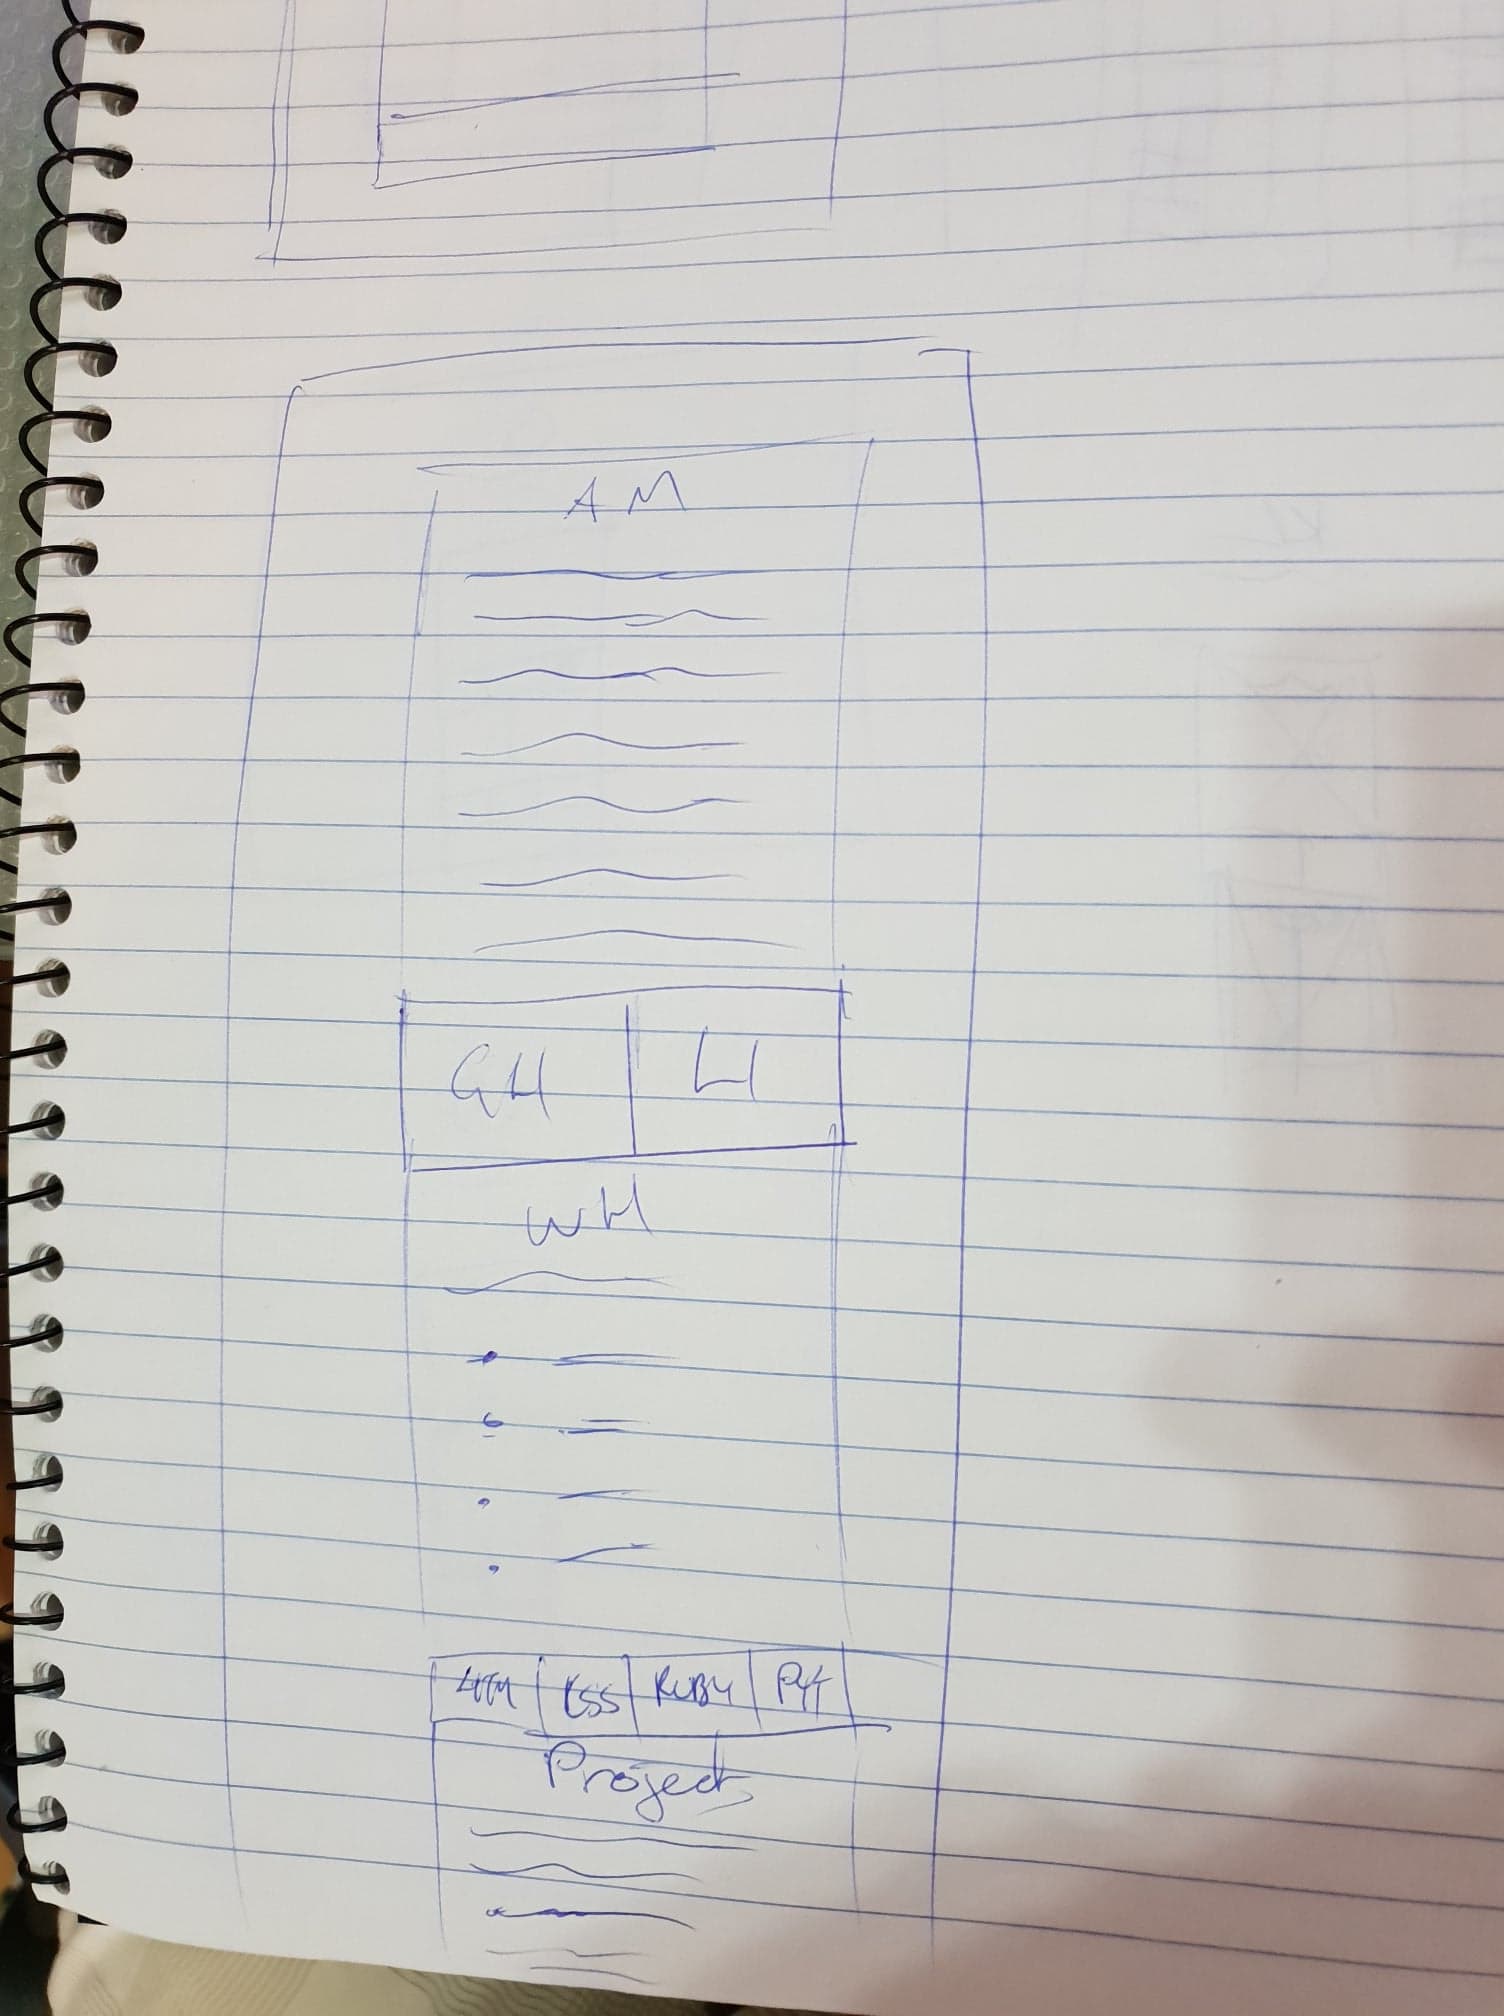 AM
GH LI
WH
CSS RUBY PYT
Projects